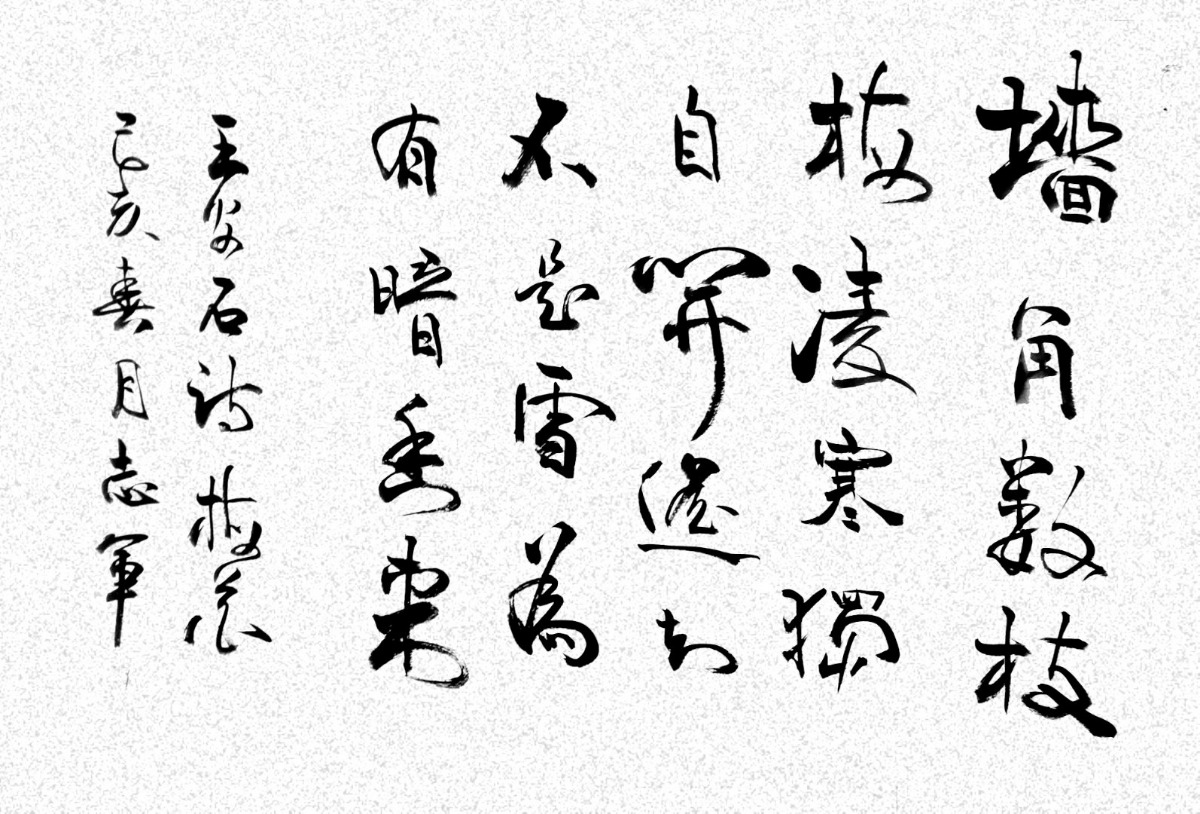 墙角数枝
梅凌寒獨
自開遥知
不是雪為
有暗香来
王安石詩梅花
己亥春月志軍